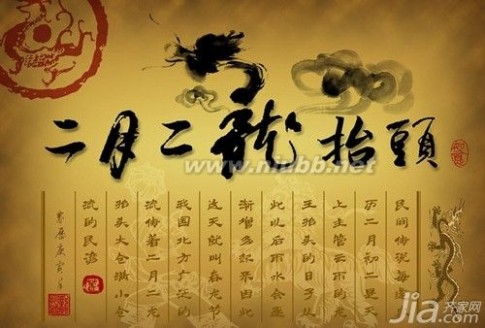 二月二龍抬頭
民间传说每逢农
历二月初二是天
上主管云雨的龙
王抬头的日子从
此以后雨水会逐
渐增多起来因此
这天就叫春龙节
我国北方广泛的
流传着二月二龙
抬头大仓满小仓
流的民谚
农历庚寅年
www.niubb.net
jia.com
齐家网